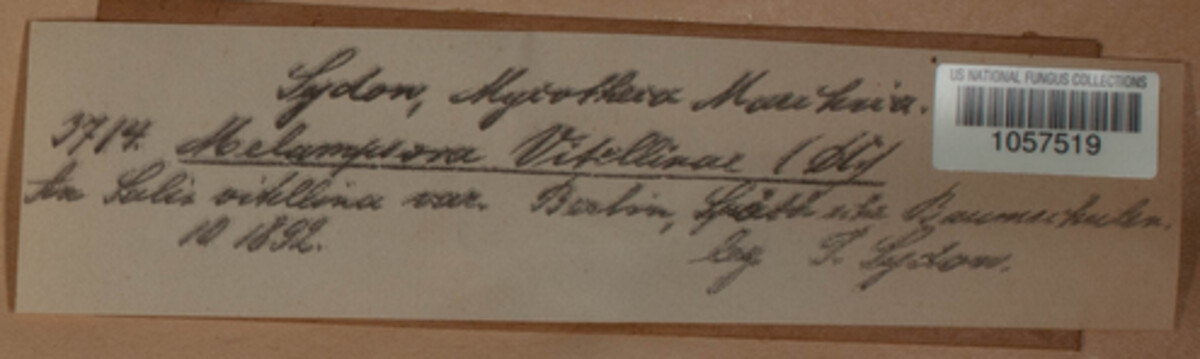 US NATIONAL FUNGUS COLLECTIONS
1057519
Sydow, Mycotheca Marchica.
3714. Melampsora Vitellinae (DC)
An Salix vitellina var. Berlin, Späth'sche Baumschulen.
10 1892. leg. P. Sydow.